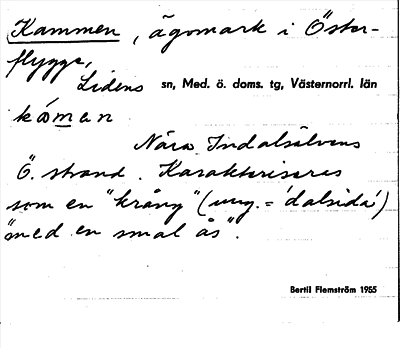 Kammen, ägomark i Öster-
flygge,
Lidens sn, Med. ö. doms. tg, Västernorrl. län
kaman
Nära Indalsälvens
Ö. strand. Karakteriseras
som en "kräng" (ung. = 'dalsida')
"med en smal ås".
Bertil Flemström 1955